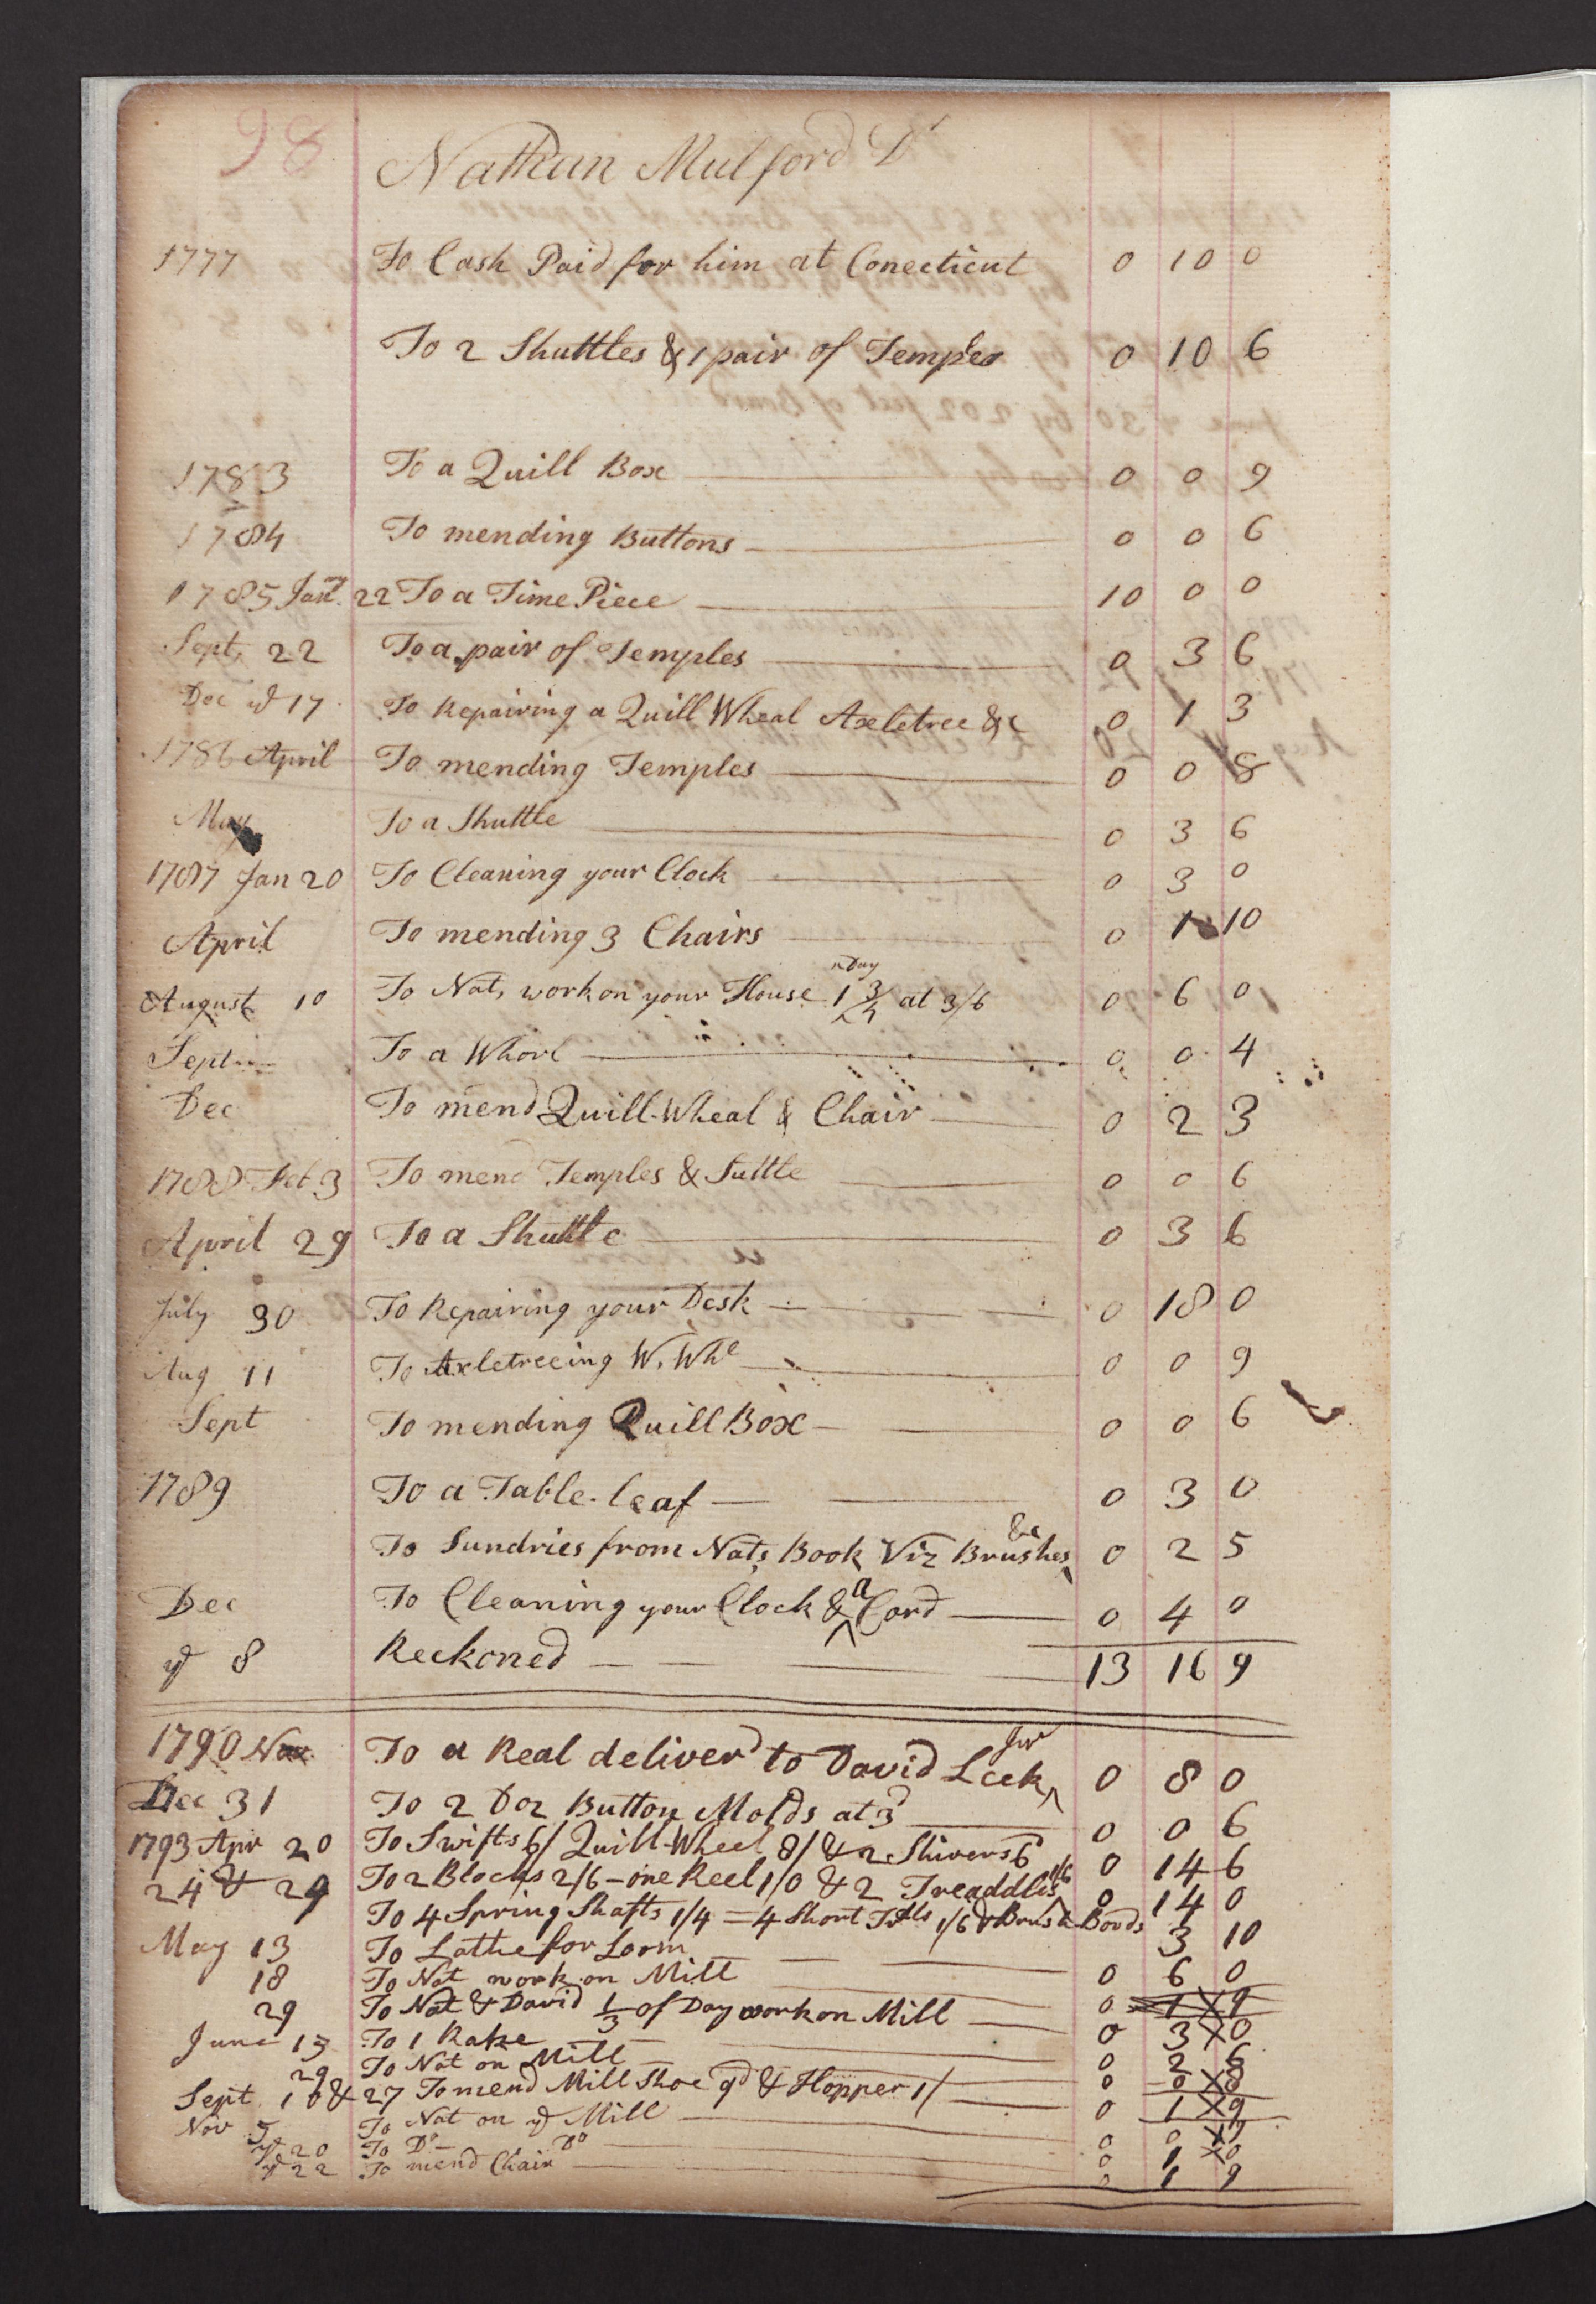 98
Nathan Mulford Dr
1777 To Cash Paid for him at Conecticut 0 10 0
To 2 Shuttles & 1 pair of Temples 0 10 6
1783 To a Quill Box 0 0 9
1784 To mending Buttons 0 0 6
1785 Jany. 22 To a Time Piece 10 0 0
Sept, 22 To a pair of Temples 0 3 6
Dec yd 17 To Repairing a Quill Wheal Axletree &c 0 1 3
1786 April To mending Temples 0 0 8
May To a Shuttle 0 3 6
1787 Jan 20 To Cleaning your Clock 0 3 0
April To mending 3 Chairs 0 1 10
August 10 To Nat, work on your House 1 3/4 Day at 3/6 0 6 0
Sept To a Whorl 0 0 4
Dec To mend Quill-Wheal & Chair 0 2 3
1788 Feb 3 To mend Temples & Suttle 0 0 6
April 29 To a Shuttle 0 3 6
July 30 To Repairing your Desk 0 18 0
Aug 11 To Axletreeing W. Whl 0 0 9
Sept To mending Quill Box 0 0 6
1789 To a Table-leaf 0 3 0
To Sundries from Nats Book Viz Brushes &c 0 2 5
Dec To Cleaning your Clock & a Cord 0 4 0
yd 8 Reckoned 13 16 9
1790 Nov To a Real deliverd to David Leek Jur 0 8 0
Dec 31 To 2 Doz Button Molds at 3d 0 0 6
1793 Apr 20 To Swifts 6/ Quill-Wheel 8/ & 2 Shivers 6d 0 14 6
24 & 29 To 2 Blocks 2/6 - one Reel 1/0 & 2 Treaddles 1/6 0 14 0
To 4 Spring Shafts 1/4 = 4 Short Tdls 1/6 & Brush Bords 3 10
May 13 To Lathe for Loom 0 6 0
18 To Nat work on Mill 0 1 9
29 To Nat & David 1/3 of Day work on Mill 0 3 0
June 13 To 1 Rake 0 2 6
29 To Nat on Mill 0 0 8
Sept 10 & 27 To mend Mill Shoe 9d & Hopper 1/ 0 1 9
Nov 5 To Nat on yd Mill 0 0
yd 20 To Do Do 0 1 0
yd 22 To mend Chair 0 1 9